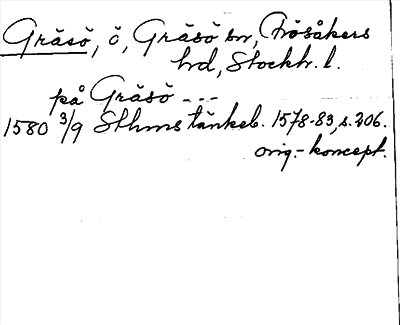 Gräsö, ö, Gräsö sn, Frösåkers
hd, Stockh. l.
på Gräsö ---
1580 3/9 Sthms tänkeb. 1578-83, s. 206.
orig.-koncept.